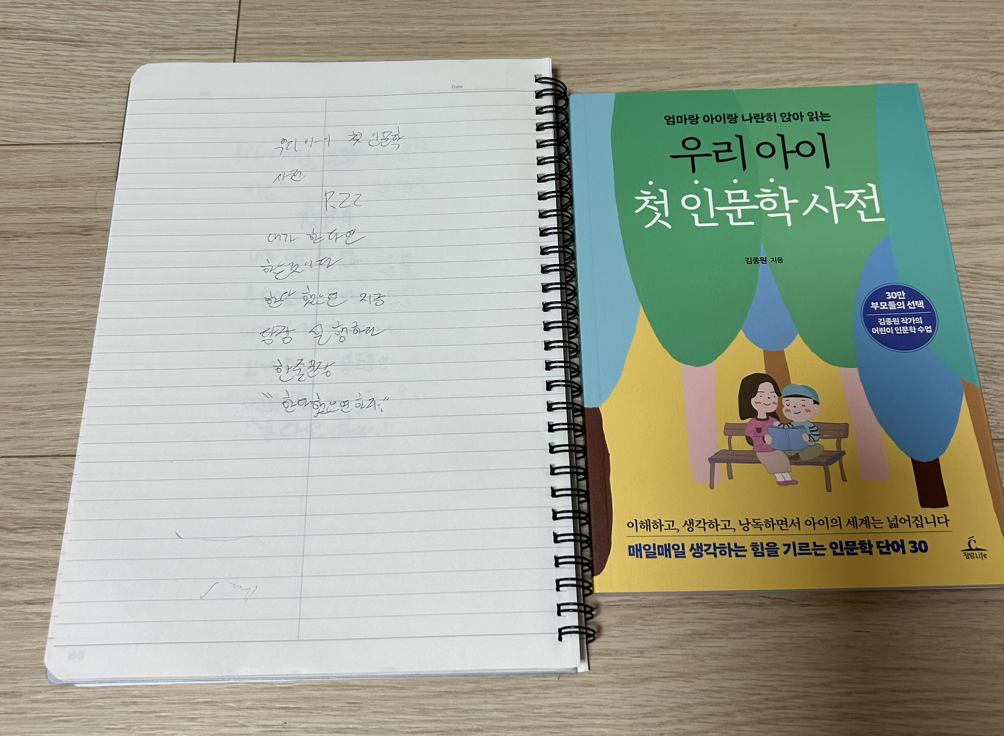 Date
우리 아이 첫 인문학
사전
P.22
내가 한다면
하는것이다
한다 했으면 지금
당장 실행하라
한줄문장
"한다했으면하자."
엄마랑 아이랑 나란히 앉아 읽는
우리 아이
첫 인문학 사전
김종원 지음
30만
부모들의 선택
김종원 작가의
어린이 인문학 수업
이해하고, 생각하고, 낭독하면서 아이의 세계는 넓어집니다
매일매일 생각하는 힘을 기르는 인문학 단어 30
청림Life